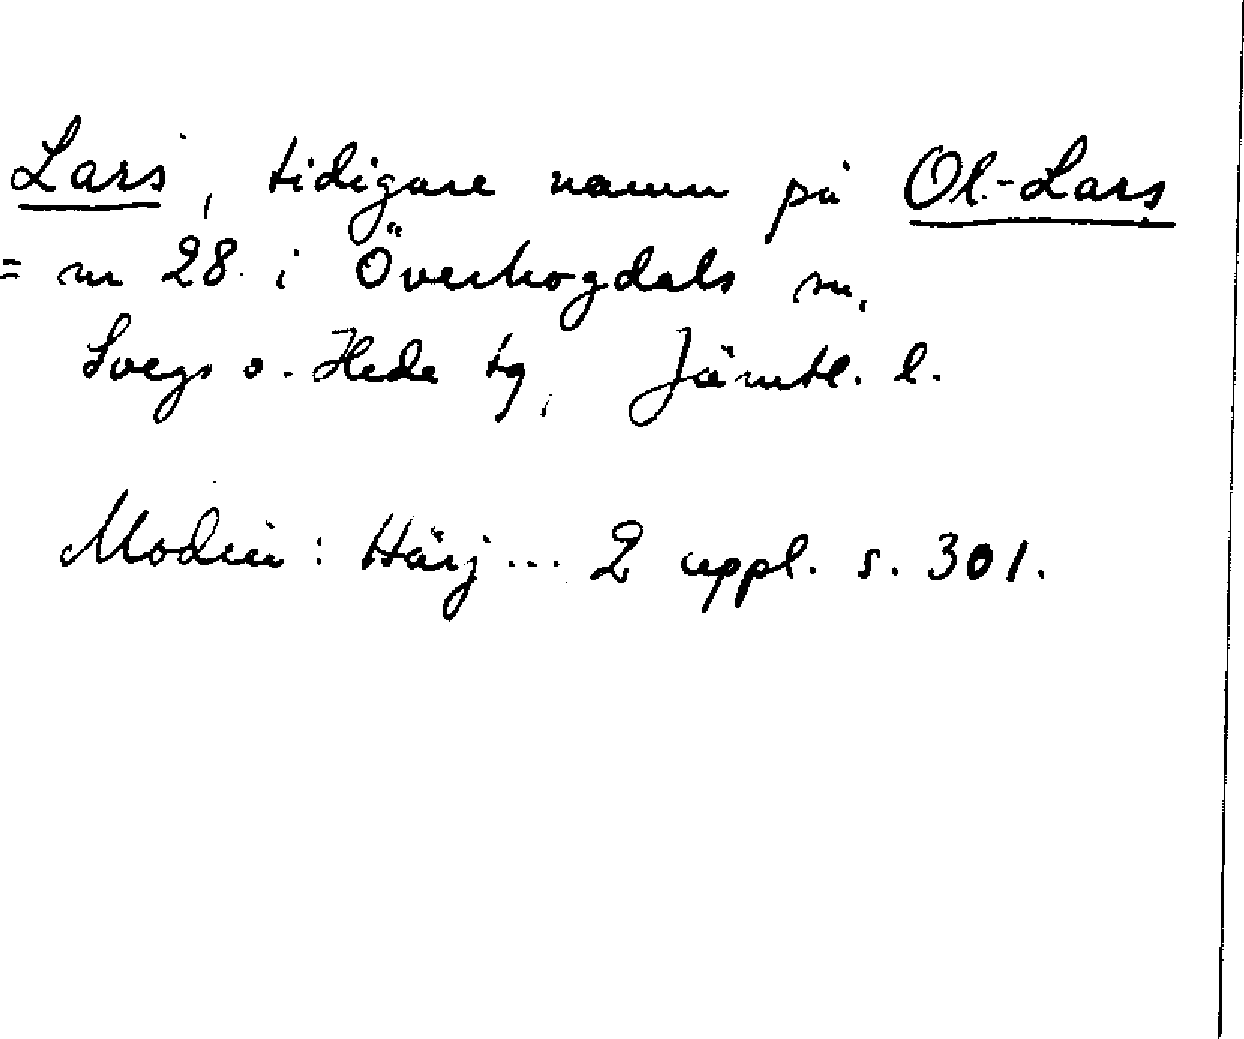 Lars, tidigare namn på Ol-Lars
= nr 28 i Överhogdals sn,
Svegs o. Hede tg, Jämtl. l.
Modin: Härj... 2 uppl. s. 301.